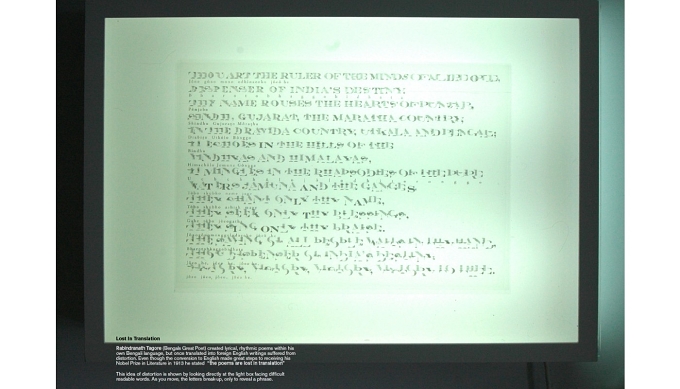 THOU ART THE RULER OF THE MINDS OF ALL PEOPLE,
DISPENSER OF INDIA'S DESTINY;
THY NAME ROUSES THE HEARTS OF PUNJAB,
SINDH, GUJARAT, THE MARATHA COUNTRY,
IN THE DRAVIDA COUNTRY, UTKALA AND BENGAL;
IT ECHOES IN THE HILLS OF THE
VINDHYAS AND HIMALAYAS,
IT MINGLES IN THE RHAPSODIES OF THE PURE
WATERS JAMUNA AND THE GANGES
THEY CHANT ONLY THY NAME,
THEY SEEK ONLY THY BLESSINGS,
THEY SING ONLY THY PRAISE,
THE SAVING OF ALL PEOPLE WAITS IN THY HAND,
THOU DISPENSER OF INDIA'S DESTINY,
VICTORY, VICTORY, VICTORY, VICTORY TO THEE;
Lost In Translation
Rabindranath Tagore (Bengals Great Poet) created lyrical, rhythmic poems within his
own Bengali language, but once translated into foreign English writings suffered from
distortion. Even though the conversion to English made great steps to receiving his
Nobel Prize in Literature in 1913 he stated "the poems are lost in translation"
This idea of distortion is shown by looking directly at the light box facing difficult
readable words. As you move, the letters break-up, only to reveal a phrase.